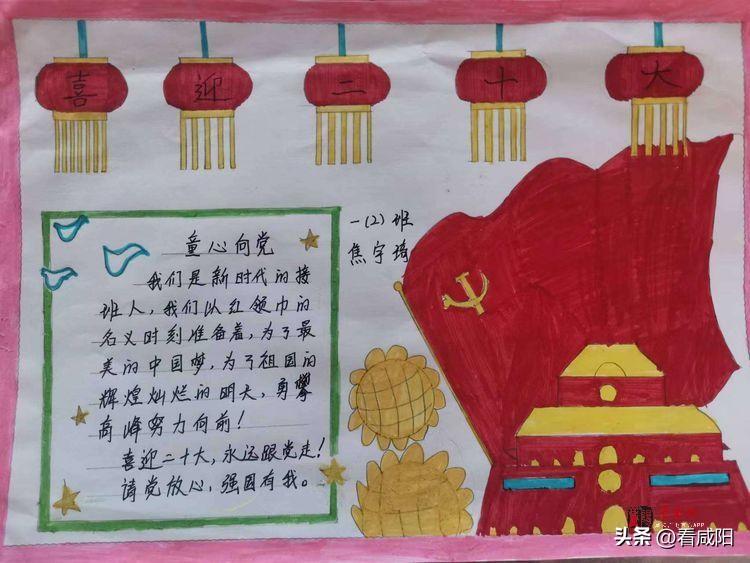 喜迎二十大
一(2)班
焦宇琦
童心向党
我们是新时代的接
班人，我们以红领巾的
名义时刻准备着，为了最
美的中国梦，为了祖国的
辉煌灿烂的明天，勇攀
高峰努力向前！
喜迎二十大，永远跟党走！
请党放心，强国有我。
头条 @看咸阳